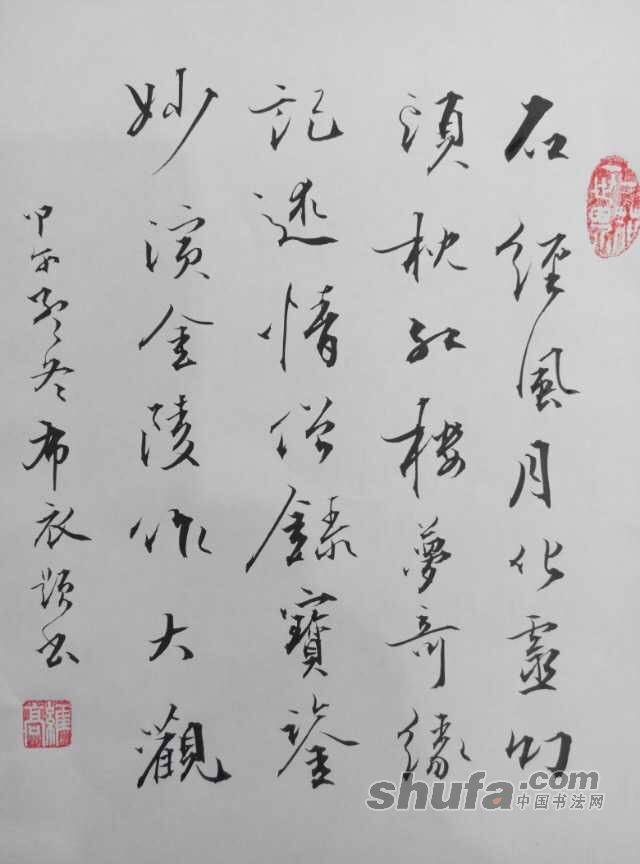 石經風月化靈
頭枕紅樓夢奇緣
記述情僧錄寶鑒
妙演金陵作大觀
甲午孟冬布衣題书
維高
shufa.com
中国书法网